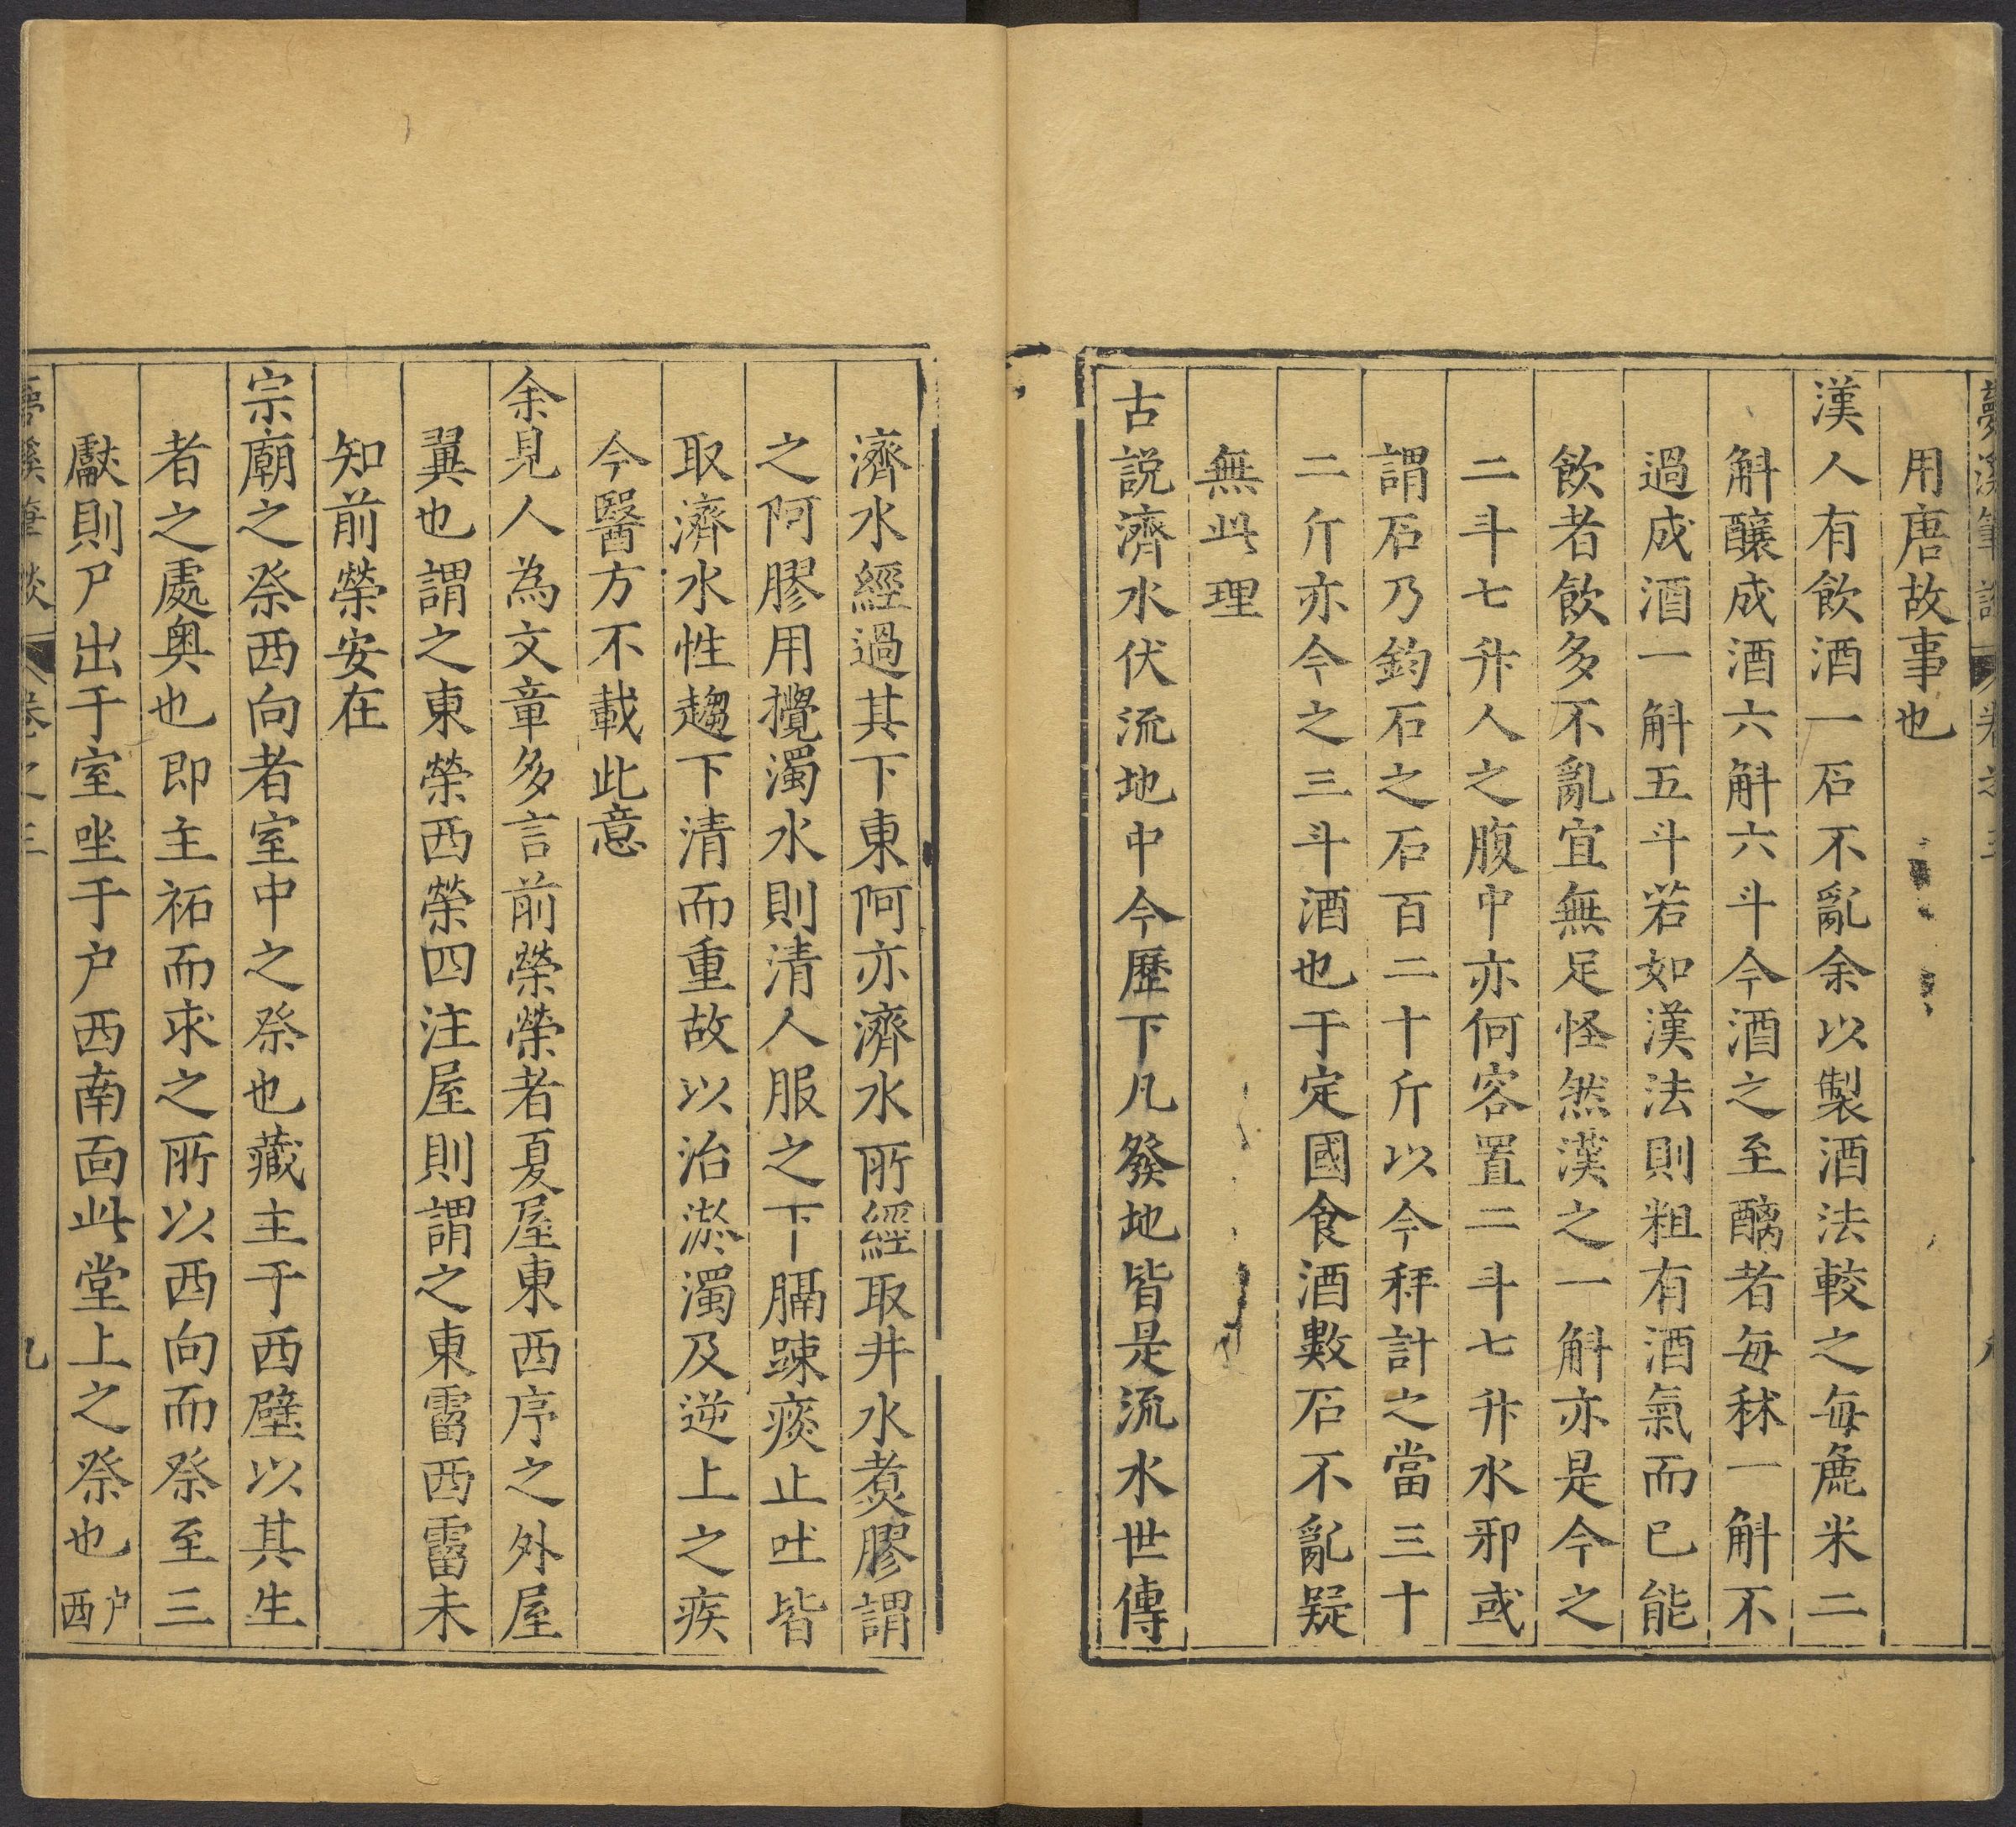 夢溪筆談 卷之三 八
用唐故事也
漢人有飲酒一石不亂余以製酒法較之每麄米二
斛釀成酒六斛六斗今酒之至醨者每秫一斛不
過成酒一斛五斗若如漢法則粗有酒氣而已能
飲者飲多不亂宜無足怪然漢之一斛亦是今之
二斗七升人之腹中亦何容置二斗七升水邪或
謂石乃鈞石之石百二十斤以今秤計之當三十
二斤亦今之三斗酒也于定國食酒數石不亂疑
無此理
古說濟水伏流地中今歷下凡發地皆是流水世傳
濟水經過其下東阿亦濟水所經取井水煑膠謂
之阿膠用攪濁水則清人服之下膈踈痰止吐皆
取濟水性趨下清而重故以治淤濁及逆上之疾
今醫方不載此意
余見人為文章多言前榮榮者夏屋東西序之外屋
翼也謂之東榮西榮四注屋則謂之東霤西霤未
知前榮安在
宗廟之祭西向者室中之祭也藏主于西壁以其生
者之處奧也即主祏而求之所以西向而祭至三
獻則尸出于室坐于户西南面此堂上之祭也户西
夢溪筆談 卷之三 九